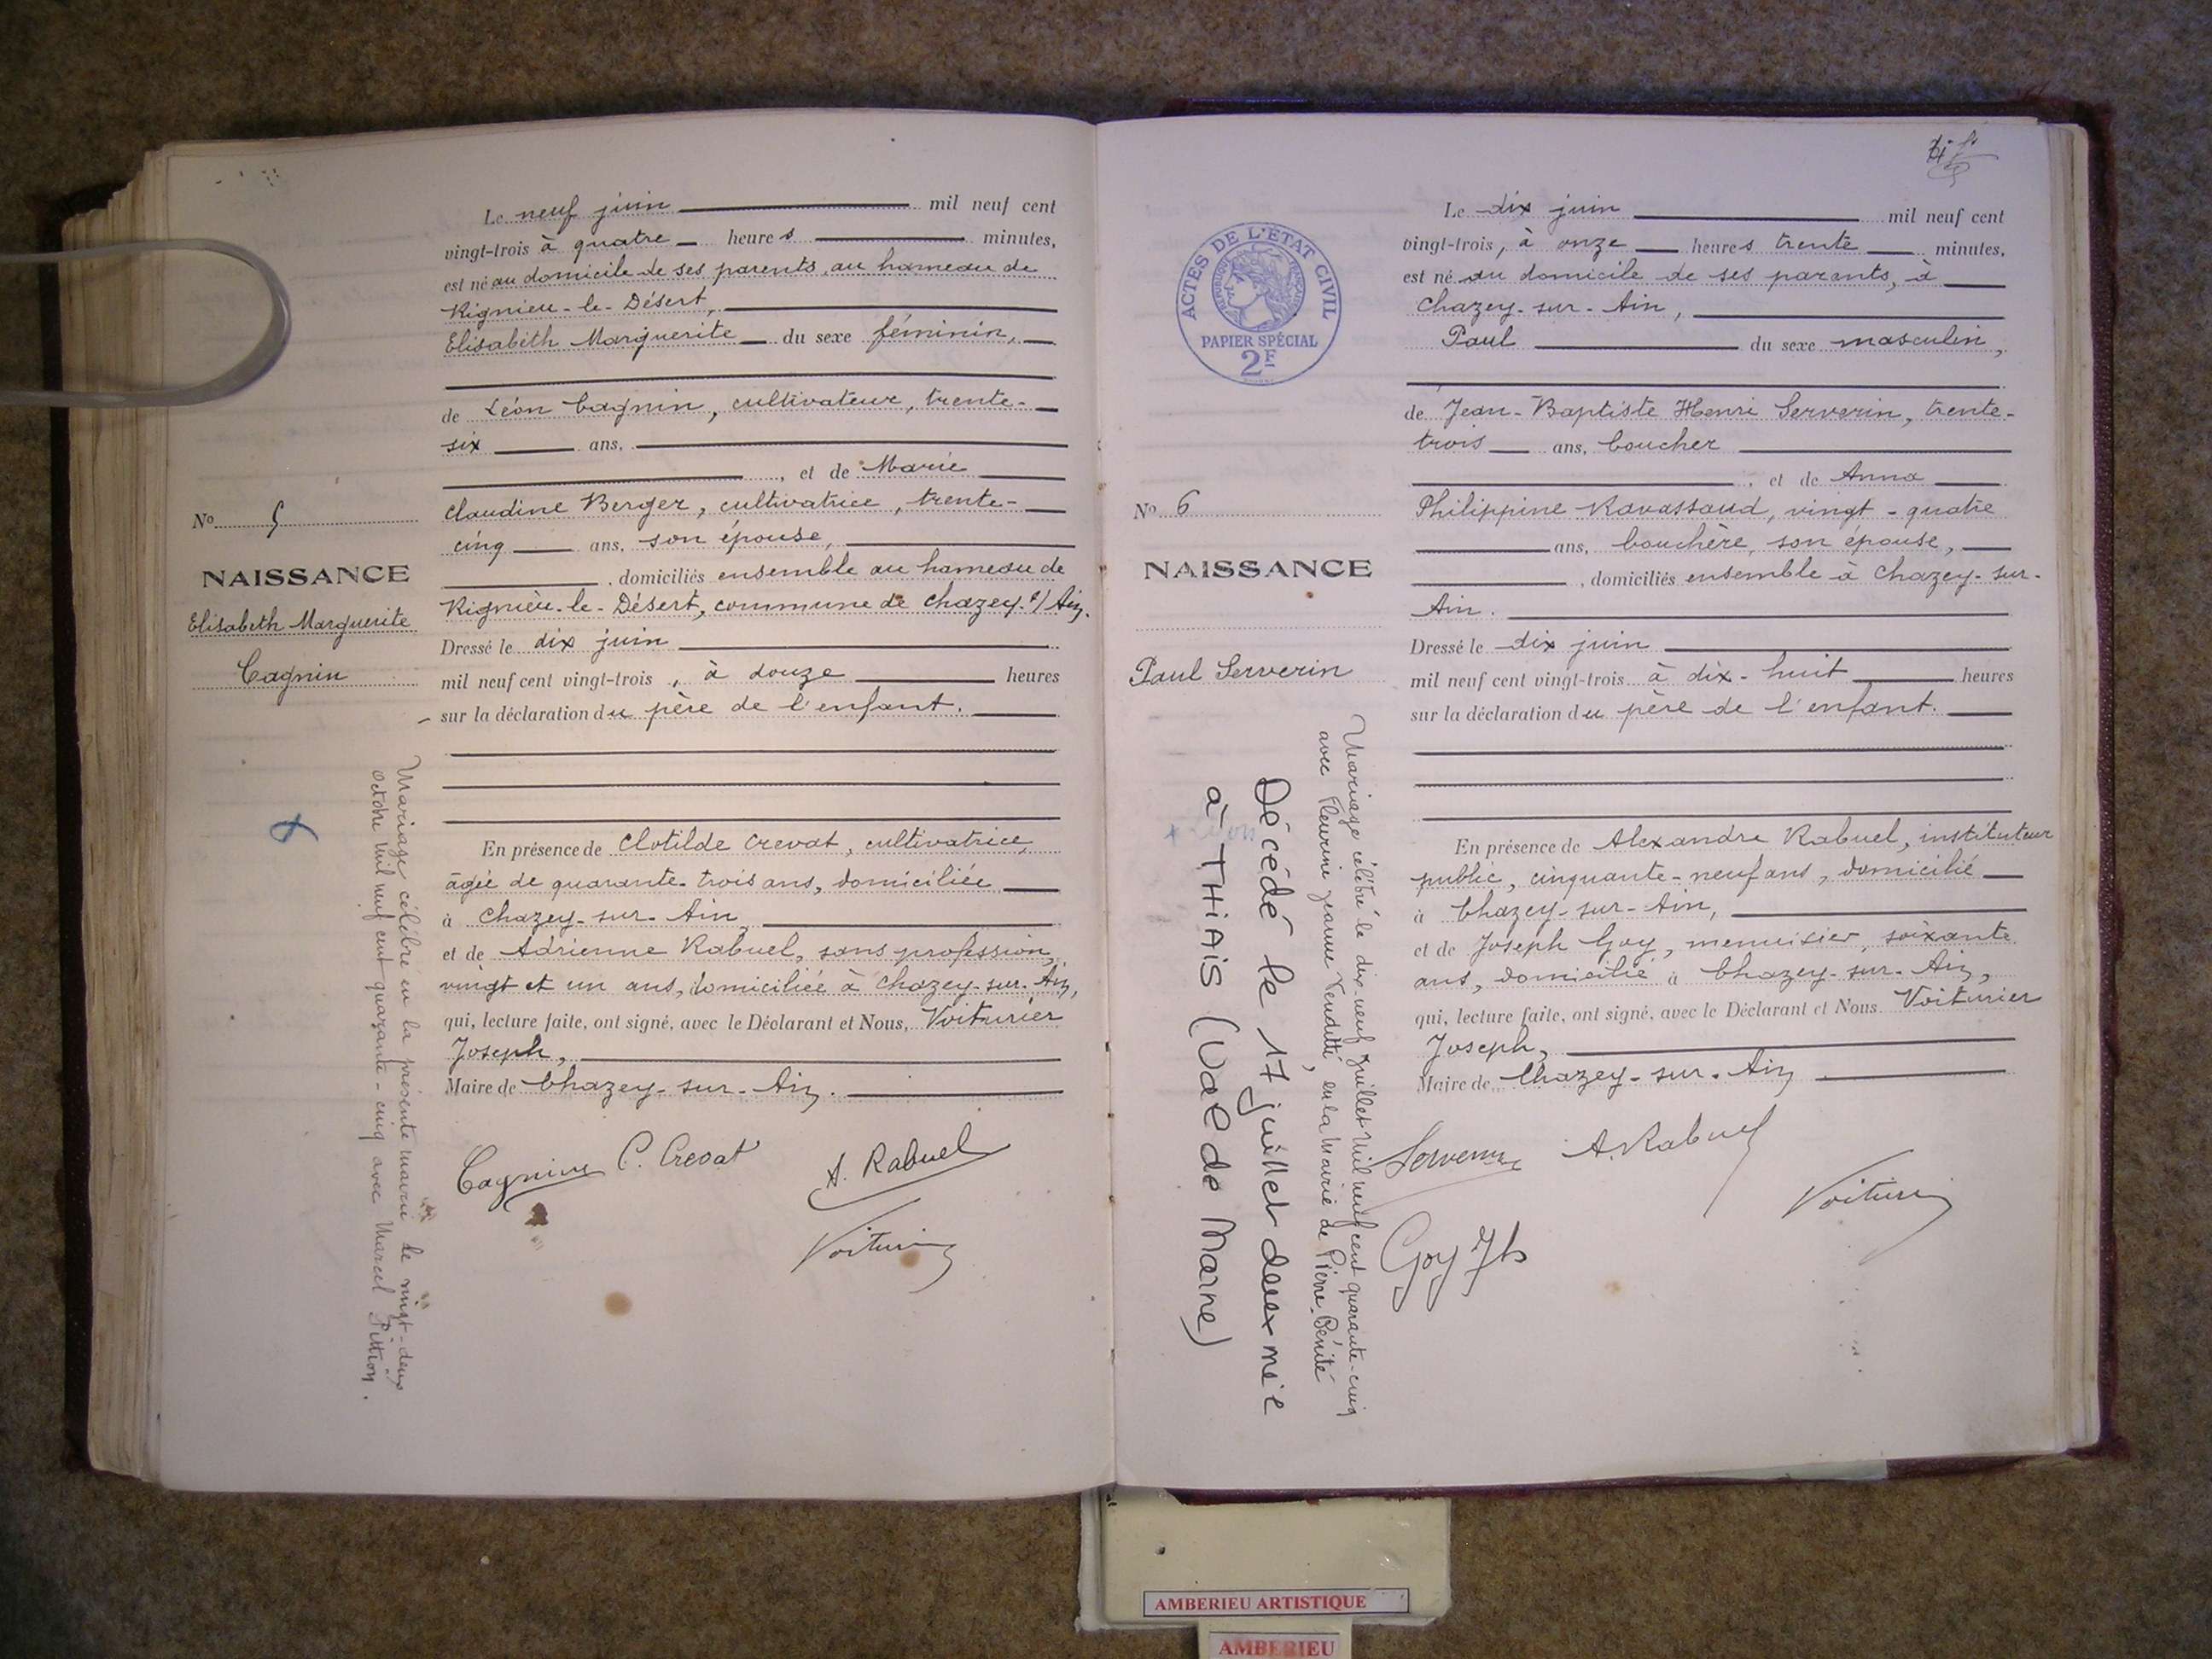 Le neuf juin mil neuf cent
vingt-trois à quatre heures minutes,
est né au domicile de ses parents, au hameau de
Rignieu-le-Désert,
Elisabeth Marguerite du sexe féminin,
de Léon Cagnin, cultivateur, trente-
six ans,
, et de Marie
Claudine Berger, cultivatrice, trente-
cinq ans, son épouse,
, domiciliés ensemble au hameau de
Rignieu-le-Désert, commune de Chazey-s/Ain.
Dressé le dix juin
mil neuf cent vingt-trois, à douze heures
sur la déclaration du père de l'enfant.
En présence de Clotilde Crevat, cultivatrice,
âgée de quarante-trois ans, domiciliée
à Chazey-sur-Ain
et de Adrienne Rabuel, sans profession,
vingt et un ans, domiciliée à Chazey-sur-Ain,
qui, lecture faite, ont signé, avec le Déclarant et Nous, Voiturier
Joseph,
Maire de Chazey-sur-Ain.
Cagnin C. Crevat A. Rabuel
Voiturier
No 5
NAISSANCE
Elisabeth Marguerite
Cagnin
Mariage célébré en la présente mairie le vingt-deux
octobre mil neuf cent quarante-cinq avec Marcel Pittion.
ACTES DE L'ÉTAT CIVIL
RÉPUBLIQUE FRANÇAISE
PAPIER SPÉCIAL
2F
No 6
NAISSANCE
Paul Serverin
Mariage célébré le dix-neuf juillet mil neuf cent quarante-cinq
avec Fleurine Jeanne Venditti, en la Mairie de Pierre-Bénite
Décédé le 17 juillet deux mil
à THIAIS (Val de Marne)
Le dix juin mil neuf cent
vingt-trois, à onze heures trente minutes,
est né au domicile de ses parents, à
Chazey-sur-Ain,
Paul du sexe masculin,
de Jean-Baptiste Henri Serverin, trente-
trois ans, boucher
, et de Anna
Philippine Ravassaud, vingt-quatre
ans, bouchère, son épouse,
, domiciliés ensemble à Chazey-sur-
Ain.
Dressé le dix juin
mil neuf cent vingt-trois à dix-huit heures
sur la déclaration du père de l'enfant.
En présence de Alexandre Rabuel, instituteur
public, cinquante-neuf ans, domicilié
à Chazey-sur-Ain,
et de Joseph Goy, menuisier, soixante
ans, domicilié à Chazey-sur-Ain,
qui, lecture faite, ont signé, avec le Déclarant et Nous. Voiturier
Joseph,
Maire de Chazey-sur-Ain
Serverin A. Rabuel
Voiturier
Goy Jh
AMBERIEU ARTISTIQUE
AMBERIEU